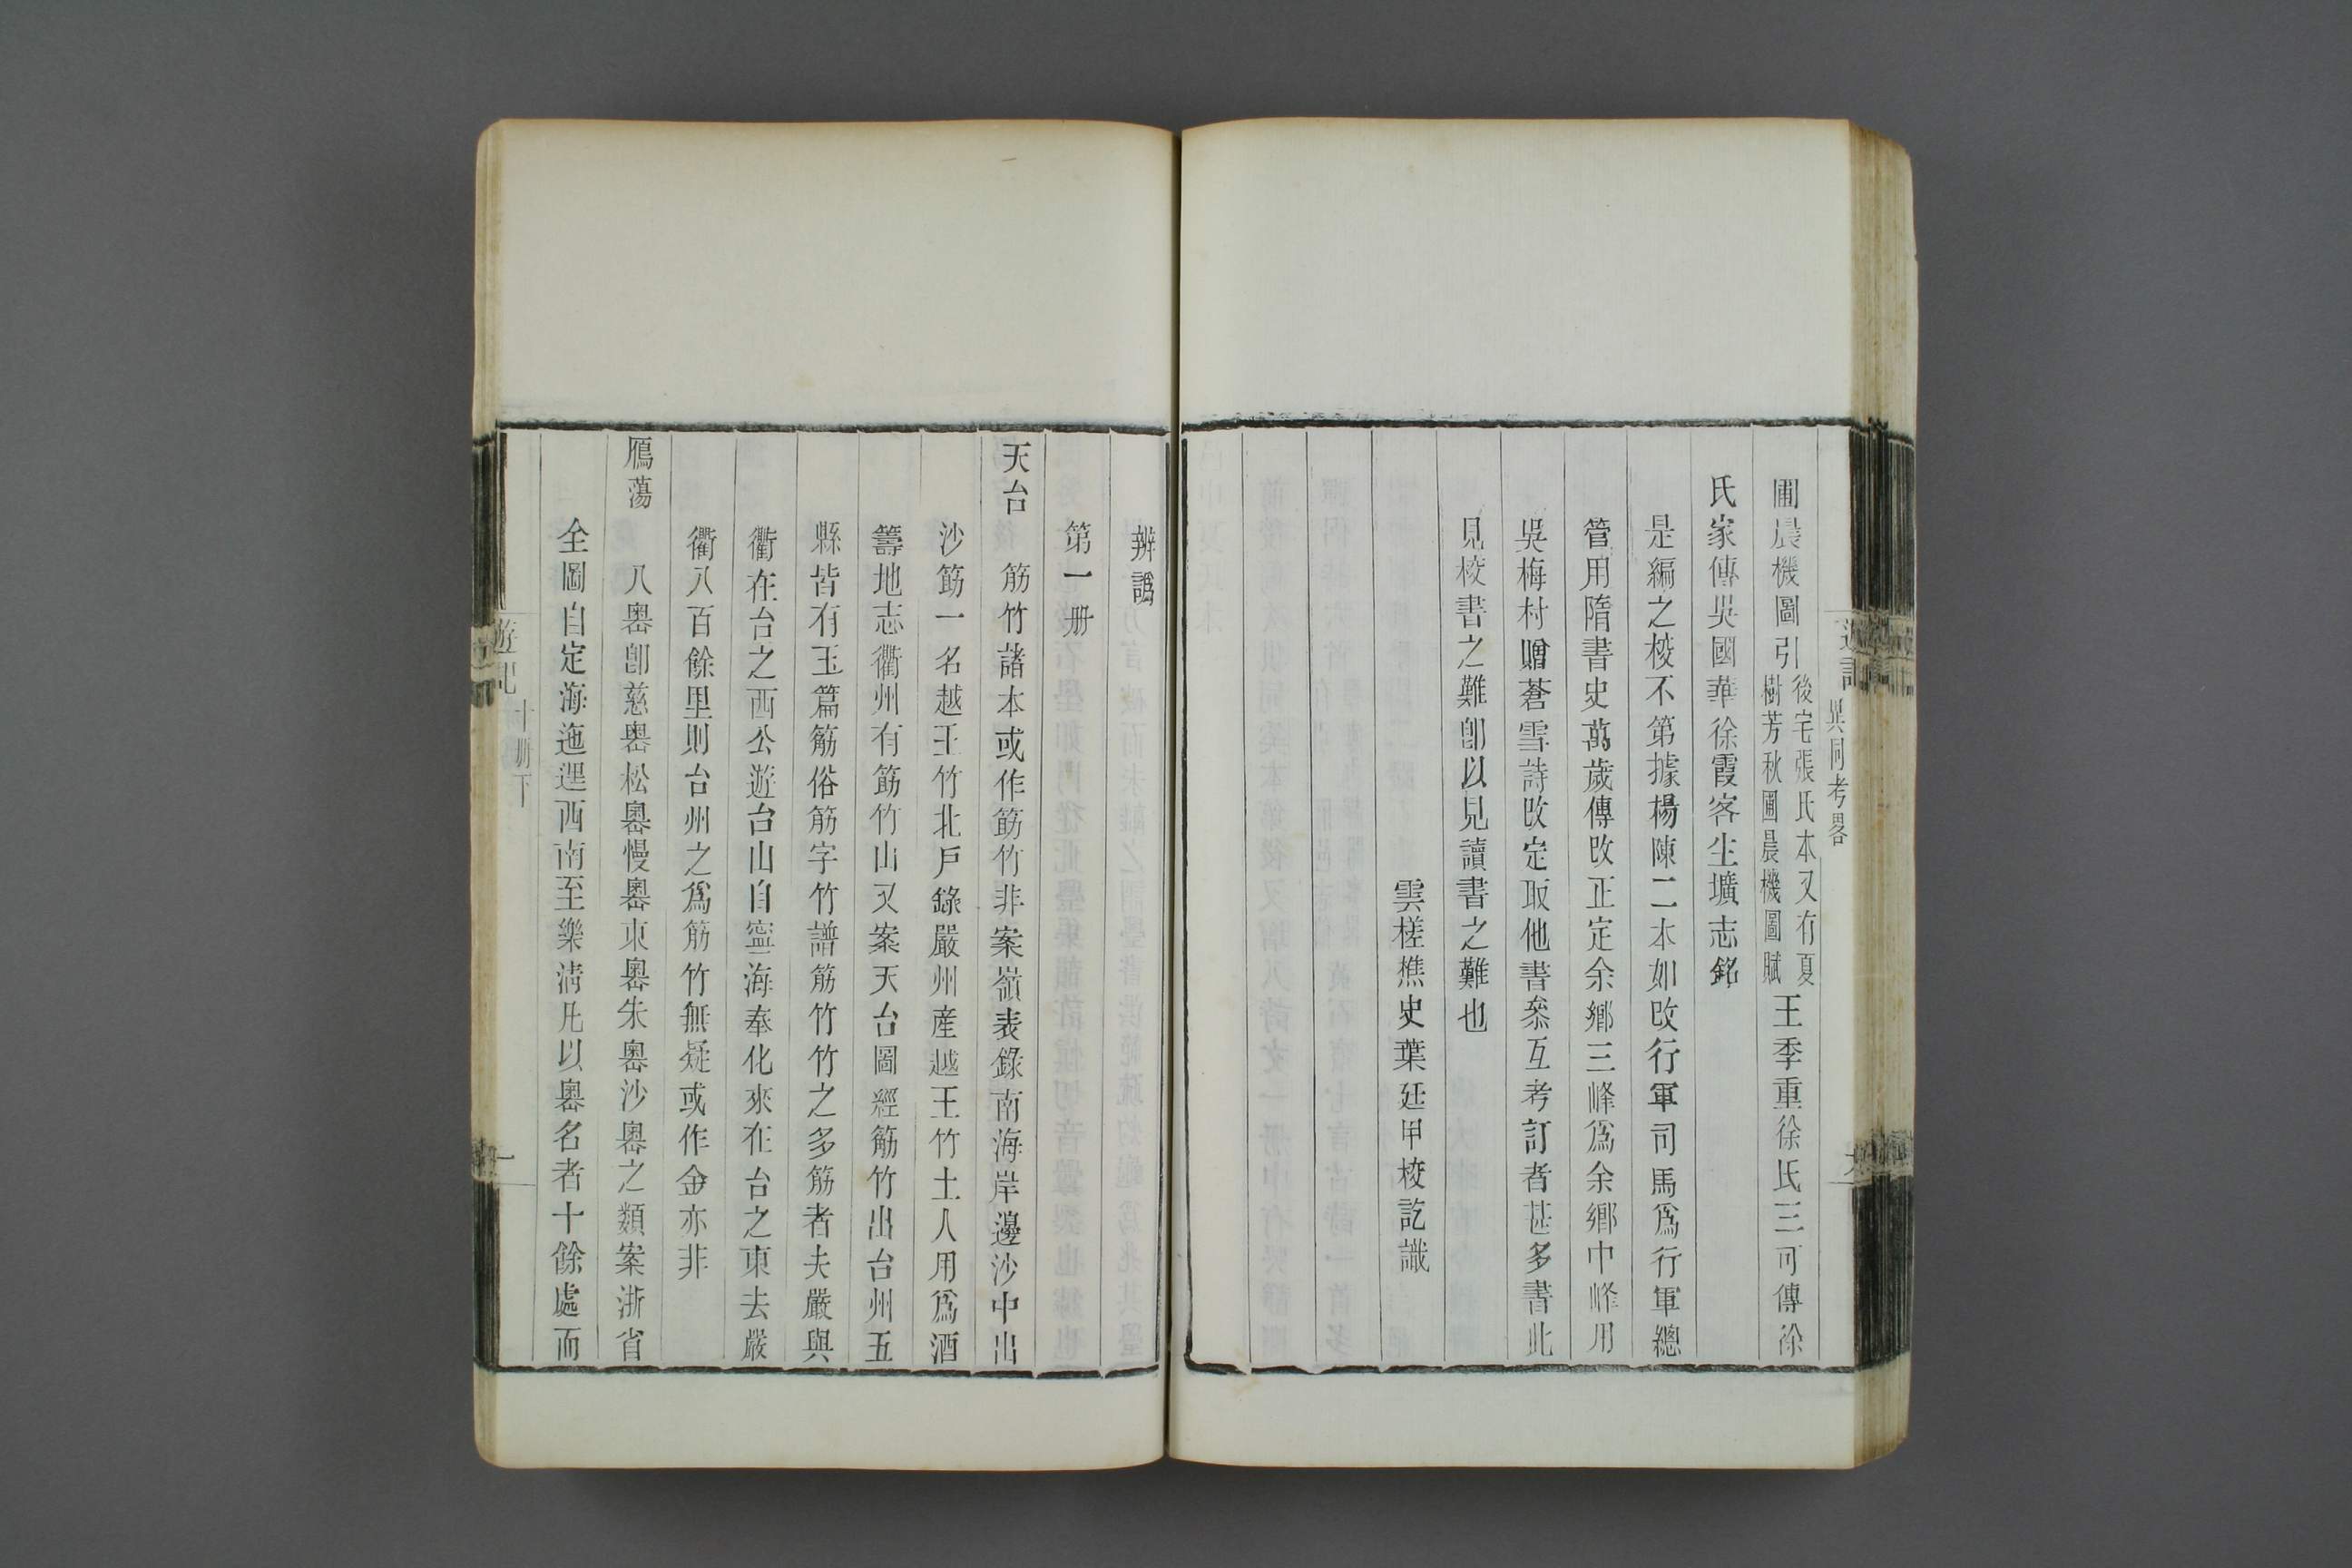 遊記
異同考畧
圃晨機圖引後宅張氏本又有夏樹芳秋圃晨機圖賦王季重徐氏三可傳徐
氏家傳吳國華徐霞客生壙志銘
是編之校不第據楊陳二本如改行軍司馬爲行軍總
管用隋書史萬歲傳改正定余鄉三峰爲余鄉中峰用
吳梅村贈蒼雪詩改定取他書叅互考訂者甚多書此
見校書之難卽以見讀書之難也
雲槎樵史葉廷甲校訖識
辨譌
第一册
天台　筋竹諸本或作筯竹非案嶺表錄南海岸邊沙中出
沙筯一名越王竹北戶錄嚴州産越王竹土人用爲酒
籌地志衢州有筯竹山又案天台圖經筋竹出台州五
縣皆有玉篇觔俗筋字竹譜筋竹竹之多筋者夫嚴與
衢在台之西公遊台山自寧海奉化來在台之東去嚴
衢八百餘里則台州之爲筋竹無疑或作金亦非
鴈蕩　八嶴卽慈嶴松嶴慢嶴東嶴朱嶴沙嶴之類案浙省
全圖自定海迤邐西南至樂清凡以嶴名者十餘處而
遊記
十册下
一